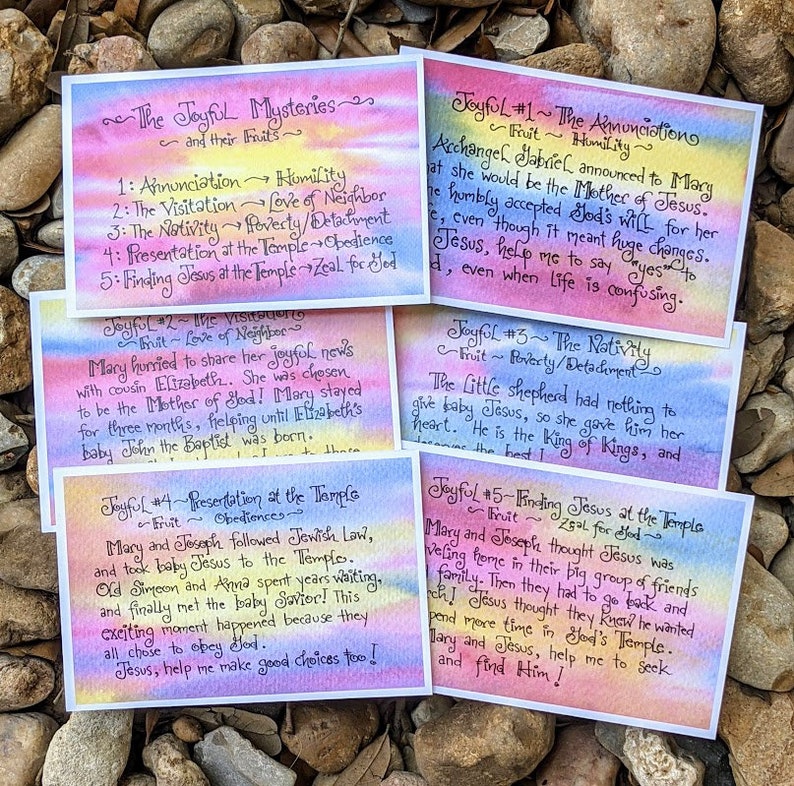 The Joyful Mysteries
~ and their Fruits ~
1: Annunciation → Humility
2: The Visitation → Love of Neighbor
3: The Nativity → Poverty/Detachment
4: Presentation at the Temple → Obedience
5: Finding Jesus at the Temple → Zeal for God
Joyful #1 ~ The Annunciation
~ Fruit ~ Humility ~
Archangel Gabriel announced to Mary
she would be the Mother of Jesus.
humbly accepted God's will for her
, even though it meant huge changes.
Jesus, help me to say "yes" to
, even when life is confusing.
Joyful #2 ~ The Visitation
~ Fruit ~ Love of Neighbor ~
Mary hurried to share her joyful news
with cousin Elizabeth. She was chosen
to be the Mother of God! Mary stayed
for three months, helping until Elizabeth's
baby John the Baptist was born.
Joyful #3 ~ The Nativity
~ Fruit ~ Poverty/Detachment ~
The little shepherd had nothing to
give baby Jesus, so she gave him her
heart. He is the King of Kings, and
deserves the best!
Joyful #4 ~ Presentation at the Temple
~ Fruit ~ Obedience ~
Mary and Joseph followed Jewish Law,
and took baby Jesus to the Temple.
Old Simeon and Anna spent years waiting,
and finally met the baby Savior! This
exciting moment happened because they
all chose to obey God.
Jesus, help me make good choices too!
Joyful #5 ~ Finding Jesus at the Temple
~ Fruit ~ Zeal for God ~
Mary and Joseph thought Jesus was
home in their big group of friends
family. Then they had to go back and
Jesus thought they knew he wanted
spend more time in God's Temple.
Mary and Jesus, help me to seek
and find Him!